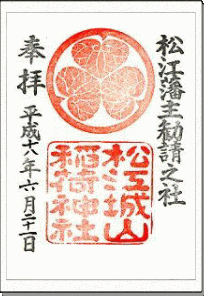 松江藩主勧請之社
奉拝
平成十八年六月二十一日
松江城山
稲荷神社